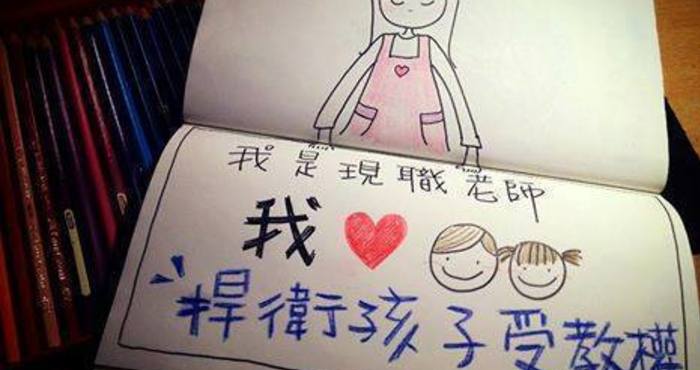 我是現職老師
我
捍衛孩子受教權